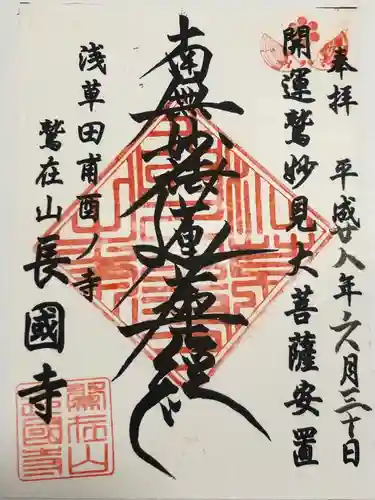 奉拝 平成廿八年六月三十日
開運鷲妙見大菩薩安置
南無妙法蓮華経
浅草田甫酉ノ寺
鷲在山
長國寺
鷲在山
長國寺